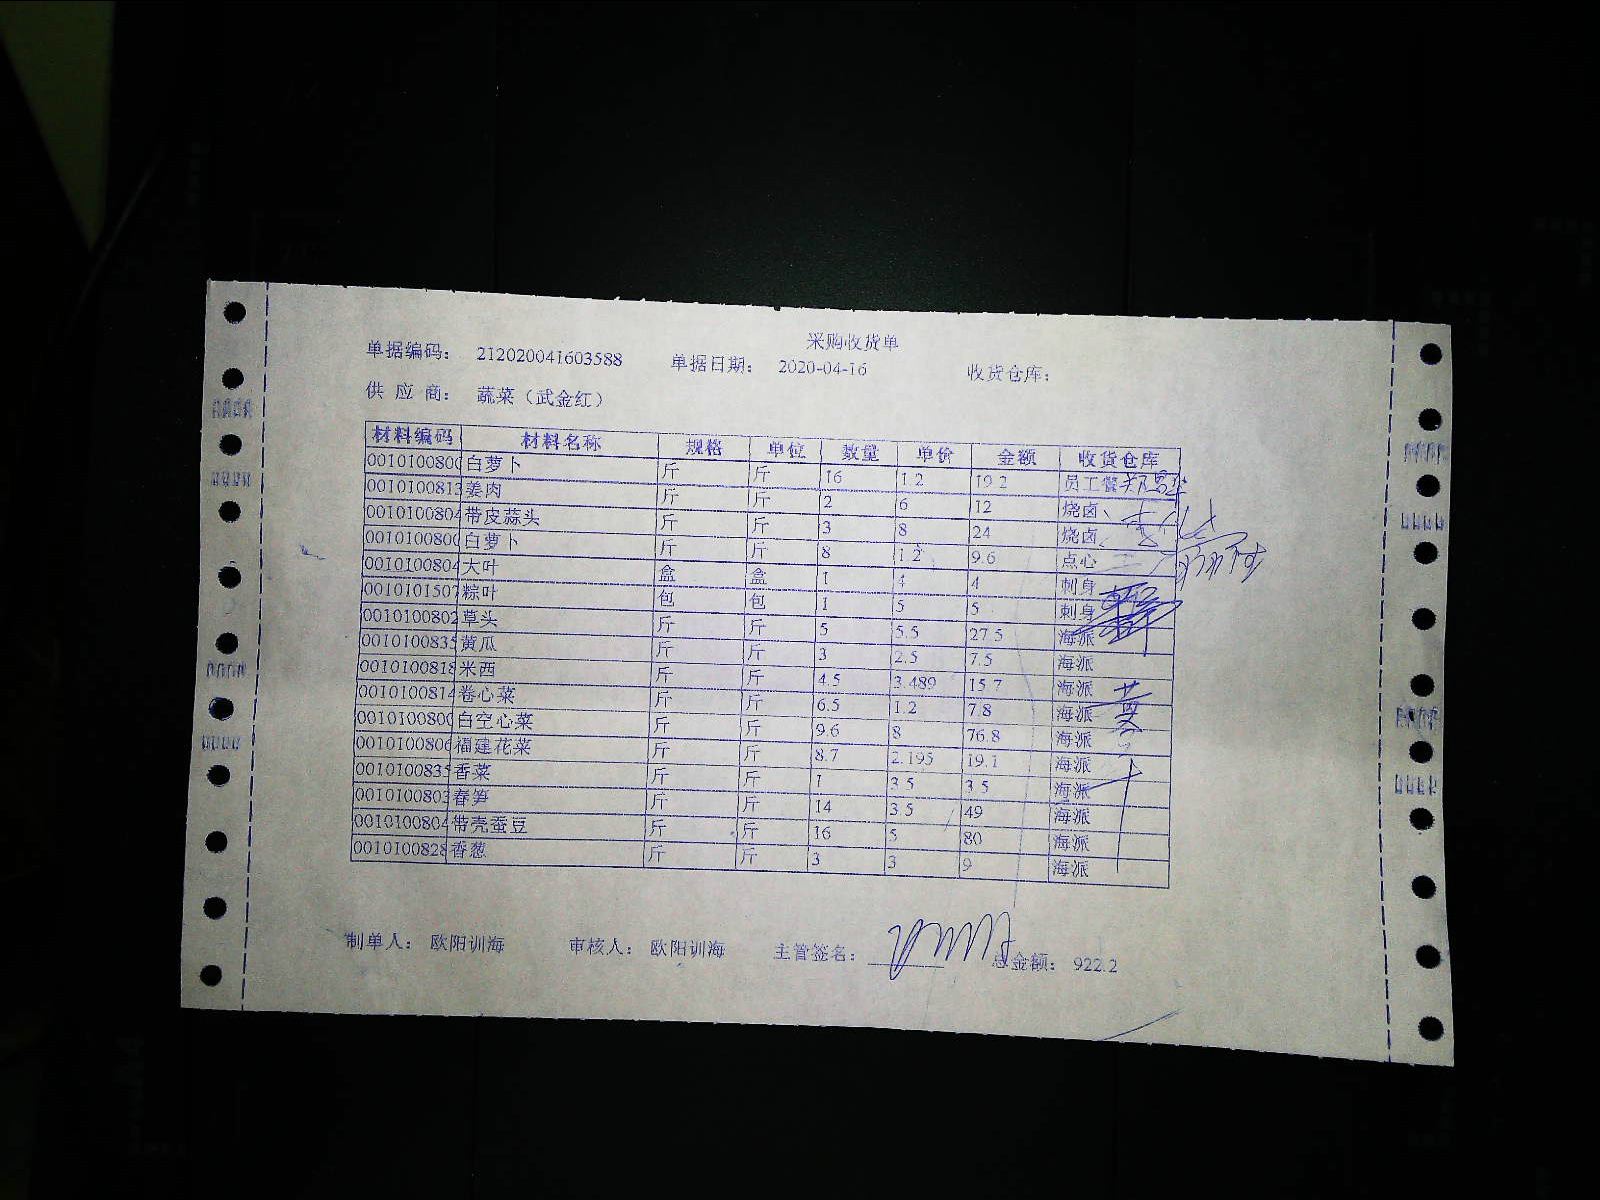 采购收货单
单据编码： 212020041603588 单据日期： 2020-04-16 收货仓库：
供 应 商： 蔬菜（武金红）
材料编码 材料名称 规格 单位 数量 单价 金额 收货仓库
0010100800 白萝卜 斤 斤 16 1.2 19.2 员工餐
0010100813 姜肉 斤 斤 2 6 12 烧卤
0010100804 带皮蒜头 斤 斤 3 8 24 烧卤
0010100800 白萝卜 斤 斤 8 1.2 9.6 点心
0010100804 大叶 盒 盒 1 4 4 刺身
0010101507 粽叶 包 包 1 5 5 刺身
0010100802 草头 斤 斤 5 5.5 27.5 海派
0010100835 黄瓜 斤 斤 3 2.5 7.5 海派
0010100818 米西 斤 斤 4.5 3.489 15.7 海派
0010100814 卷心菜 斤 斤 6.5 1.2 7.8 海派
0010100800 白空心菜 斤 斤 9.6 8 76.8 海派
0010100806 福建花菜 斤 斤 8.7 2.195 19.1 海派
0010100835 香菜 斤 斤 1 3.5 3.5 海派
0010100803 春笋 斤 斤 14 3.5 49 海派
0010100804 带壳蚕豆 斤 斤 16 5 80 海派
0010100828 香葱 斤 斤 3 3 9 海派
制单人： 欧阳训海 审核人： 欧阳训海 主管签名： 总金额： 922.2